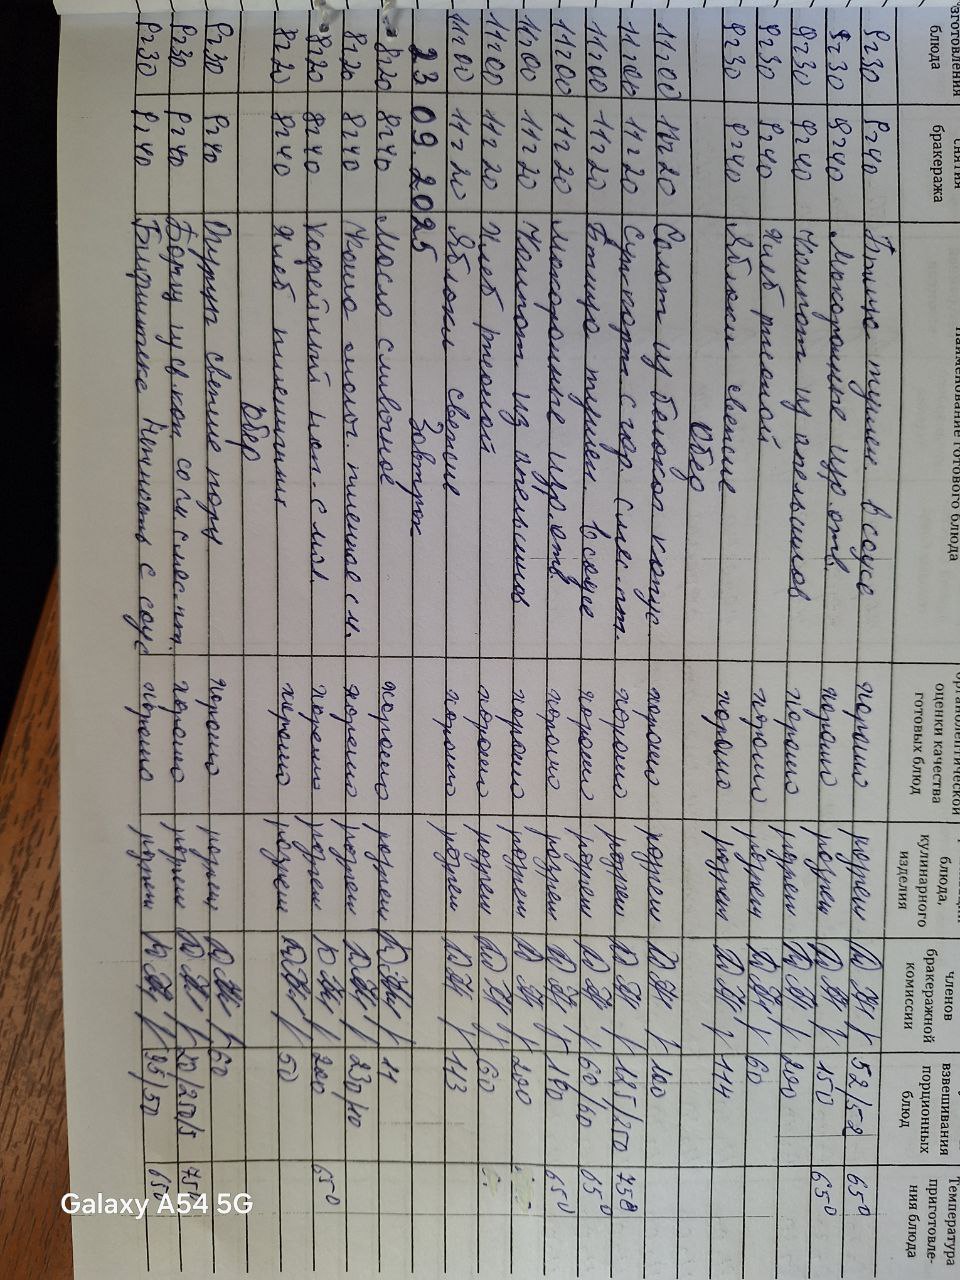 зготовления блюда
снятия бракеража
наименование готового блюда
органолептической оценки качества готовых блюд
блюда, кулинарного изделия
членов бракеражной комиссии
взвешивания порционных блюд
Температура приготовле-ния блюда
8 30 8 40 Птица тушен. в соусе хорошо разреш 52/52 65°
8 30 8 40 Макаронные изд. отв. хорошо разреш 150 65°
8 30 8 40 Компот из апельсинов хорошо разреш 200
8 30 8 40 Хлеб ржаной хорошо разреш 60
8 30 8 40 Яблоки свежие хорошо разреш 144
Обед
11 00 11 20 Салат из белокоч капус хорошо разреш 100
11 00 11 20 Суп карт. с гор смет хорошо разреш 125/250 75°
11 00 11 20 Птица тушен. в соусе хорошо разреш 60/60 65°
11 00 11 20 Макаронные изд. отв. хорошо разреш 190 65°
11 00 11 20 Компот из апельсинов хорошо разреш 200
11 00 11 20 Хлеб ржаной хорошо разреш 60
11 00 11 20 Яблоки свежие хорошо разреш 113
23 09.2025 Завтрак
8 20 8 40 Масло сливочное хорошо разреш 11
8 20 8 40 Каша молоч. пшенная с м. хорошо разреш 230/10
8 20 8 40 Кофейный нап. с мол. хорошо разреш 200 65°
8 20 8 40 Хлеб пшеничн хорошо разреш 50
Обед
8 30 8 40 Огурцы свежие порц хорошо разреш 60
8 30 8 40 Борщ из св. кап со см. хорошо разреш 20/250/5 75°
8 30 8 40 Бифштекс Нежность с соус хорошо разреш 95/50 65°
Galaxy A54 5G